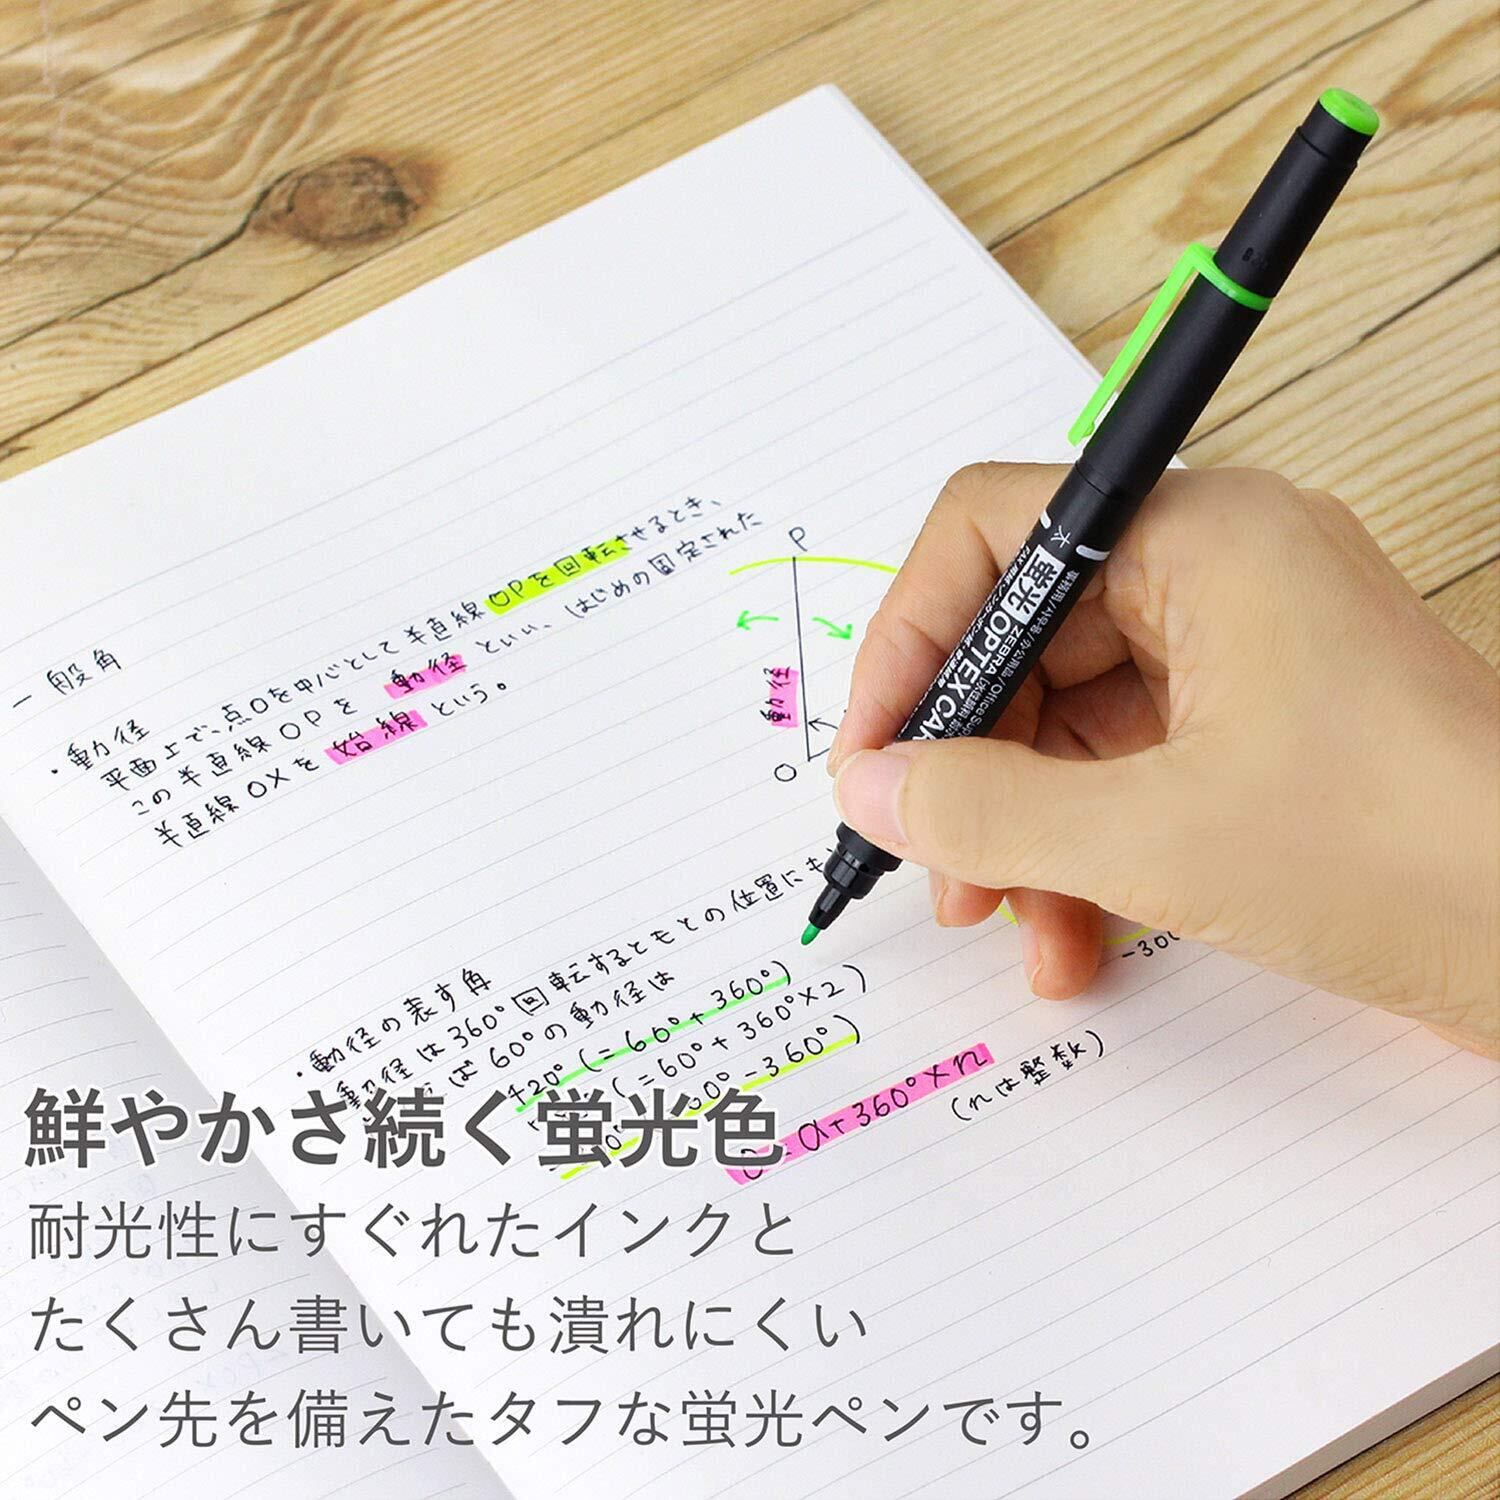 一般角
・動径
平面上で、点Oを中心として半直線OPを回転させるとき、
この半直線OPを動径といい、はじめの固定された
半直線OXを始線という。
P
動径
O
太
蛍光 OPTEX CAR
ZEBRA
事務用/사무용/办公用品/Office Sup
・動径の表す角
動径は360°回転するともとの位置にも
ば60°の動径は
420°(=60°+360°)
(=60°+360°×2)
0°-360°)
-300
α+360°×n
(nは整数)
鮮やかさ続く蛍光色
耐光性にすぐれたインクと
たくさん書いても潰れにくい
ペン先を備えたタフな蛍光ペンです。